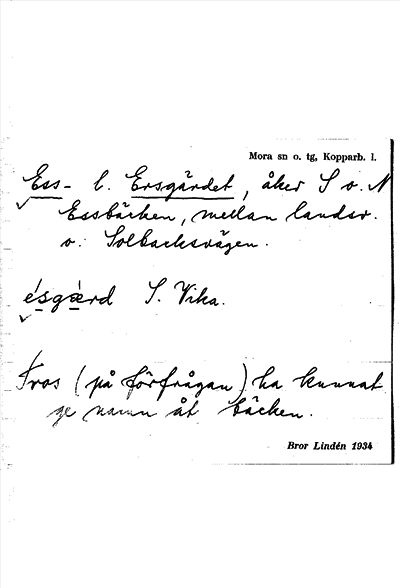 Mora sn o. tg, Kopparb. l.
Ess- l. Ersgärdet, åker S o. N
Essbäcken, mellan landsv.
o. Solbacksvägen.
ésgǽrd S. Vika.
Tros (på förfrågan) ha kunnat
ge namn åt bäcken.
Bror Lindén 1934